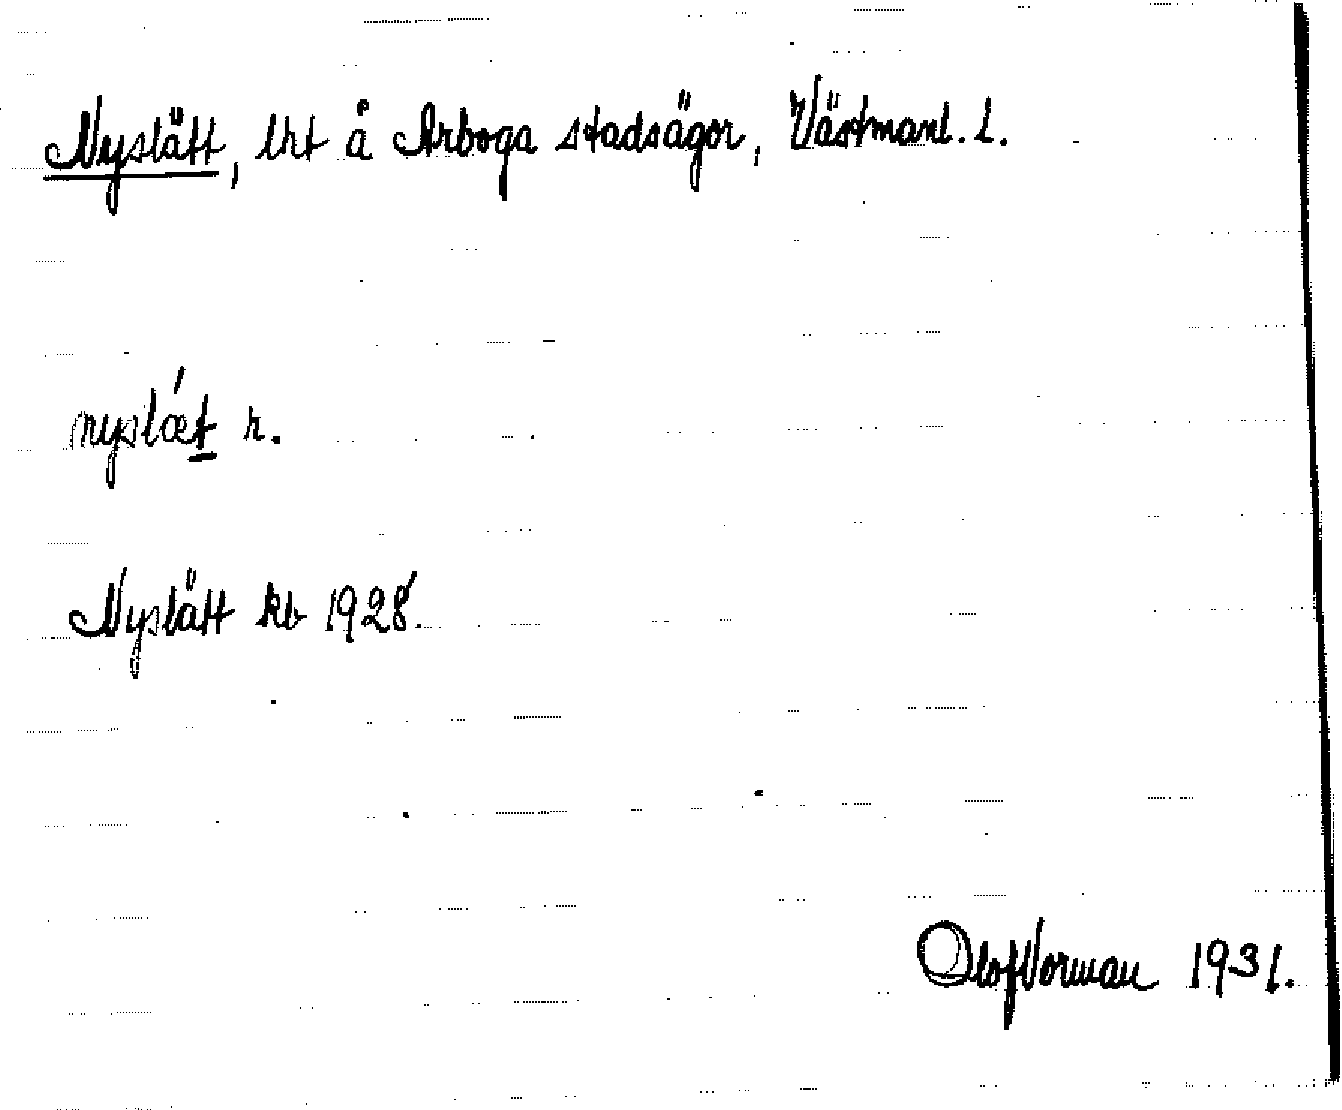 Nyslätt, lht å Arboga stadsägor, Västmanl. L.
nyslǽt r.
Nyslätt kb 1928.
Olof Norman 1931.